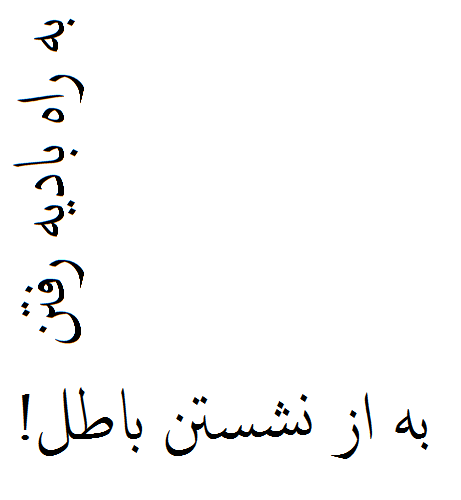 به راه بادیه رفتن
به از نشستن باطل!